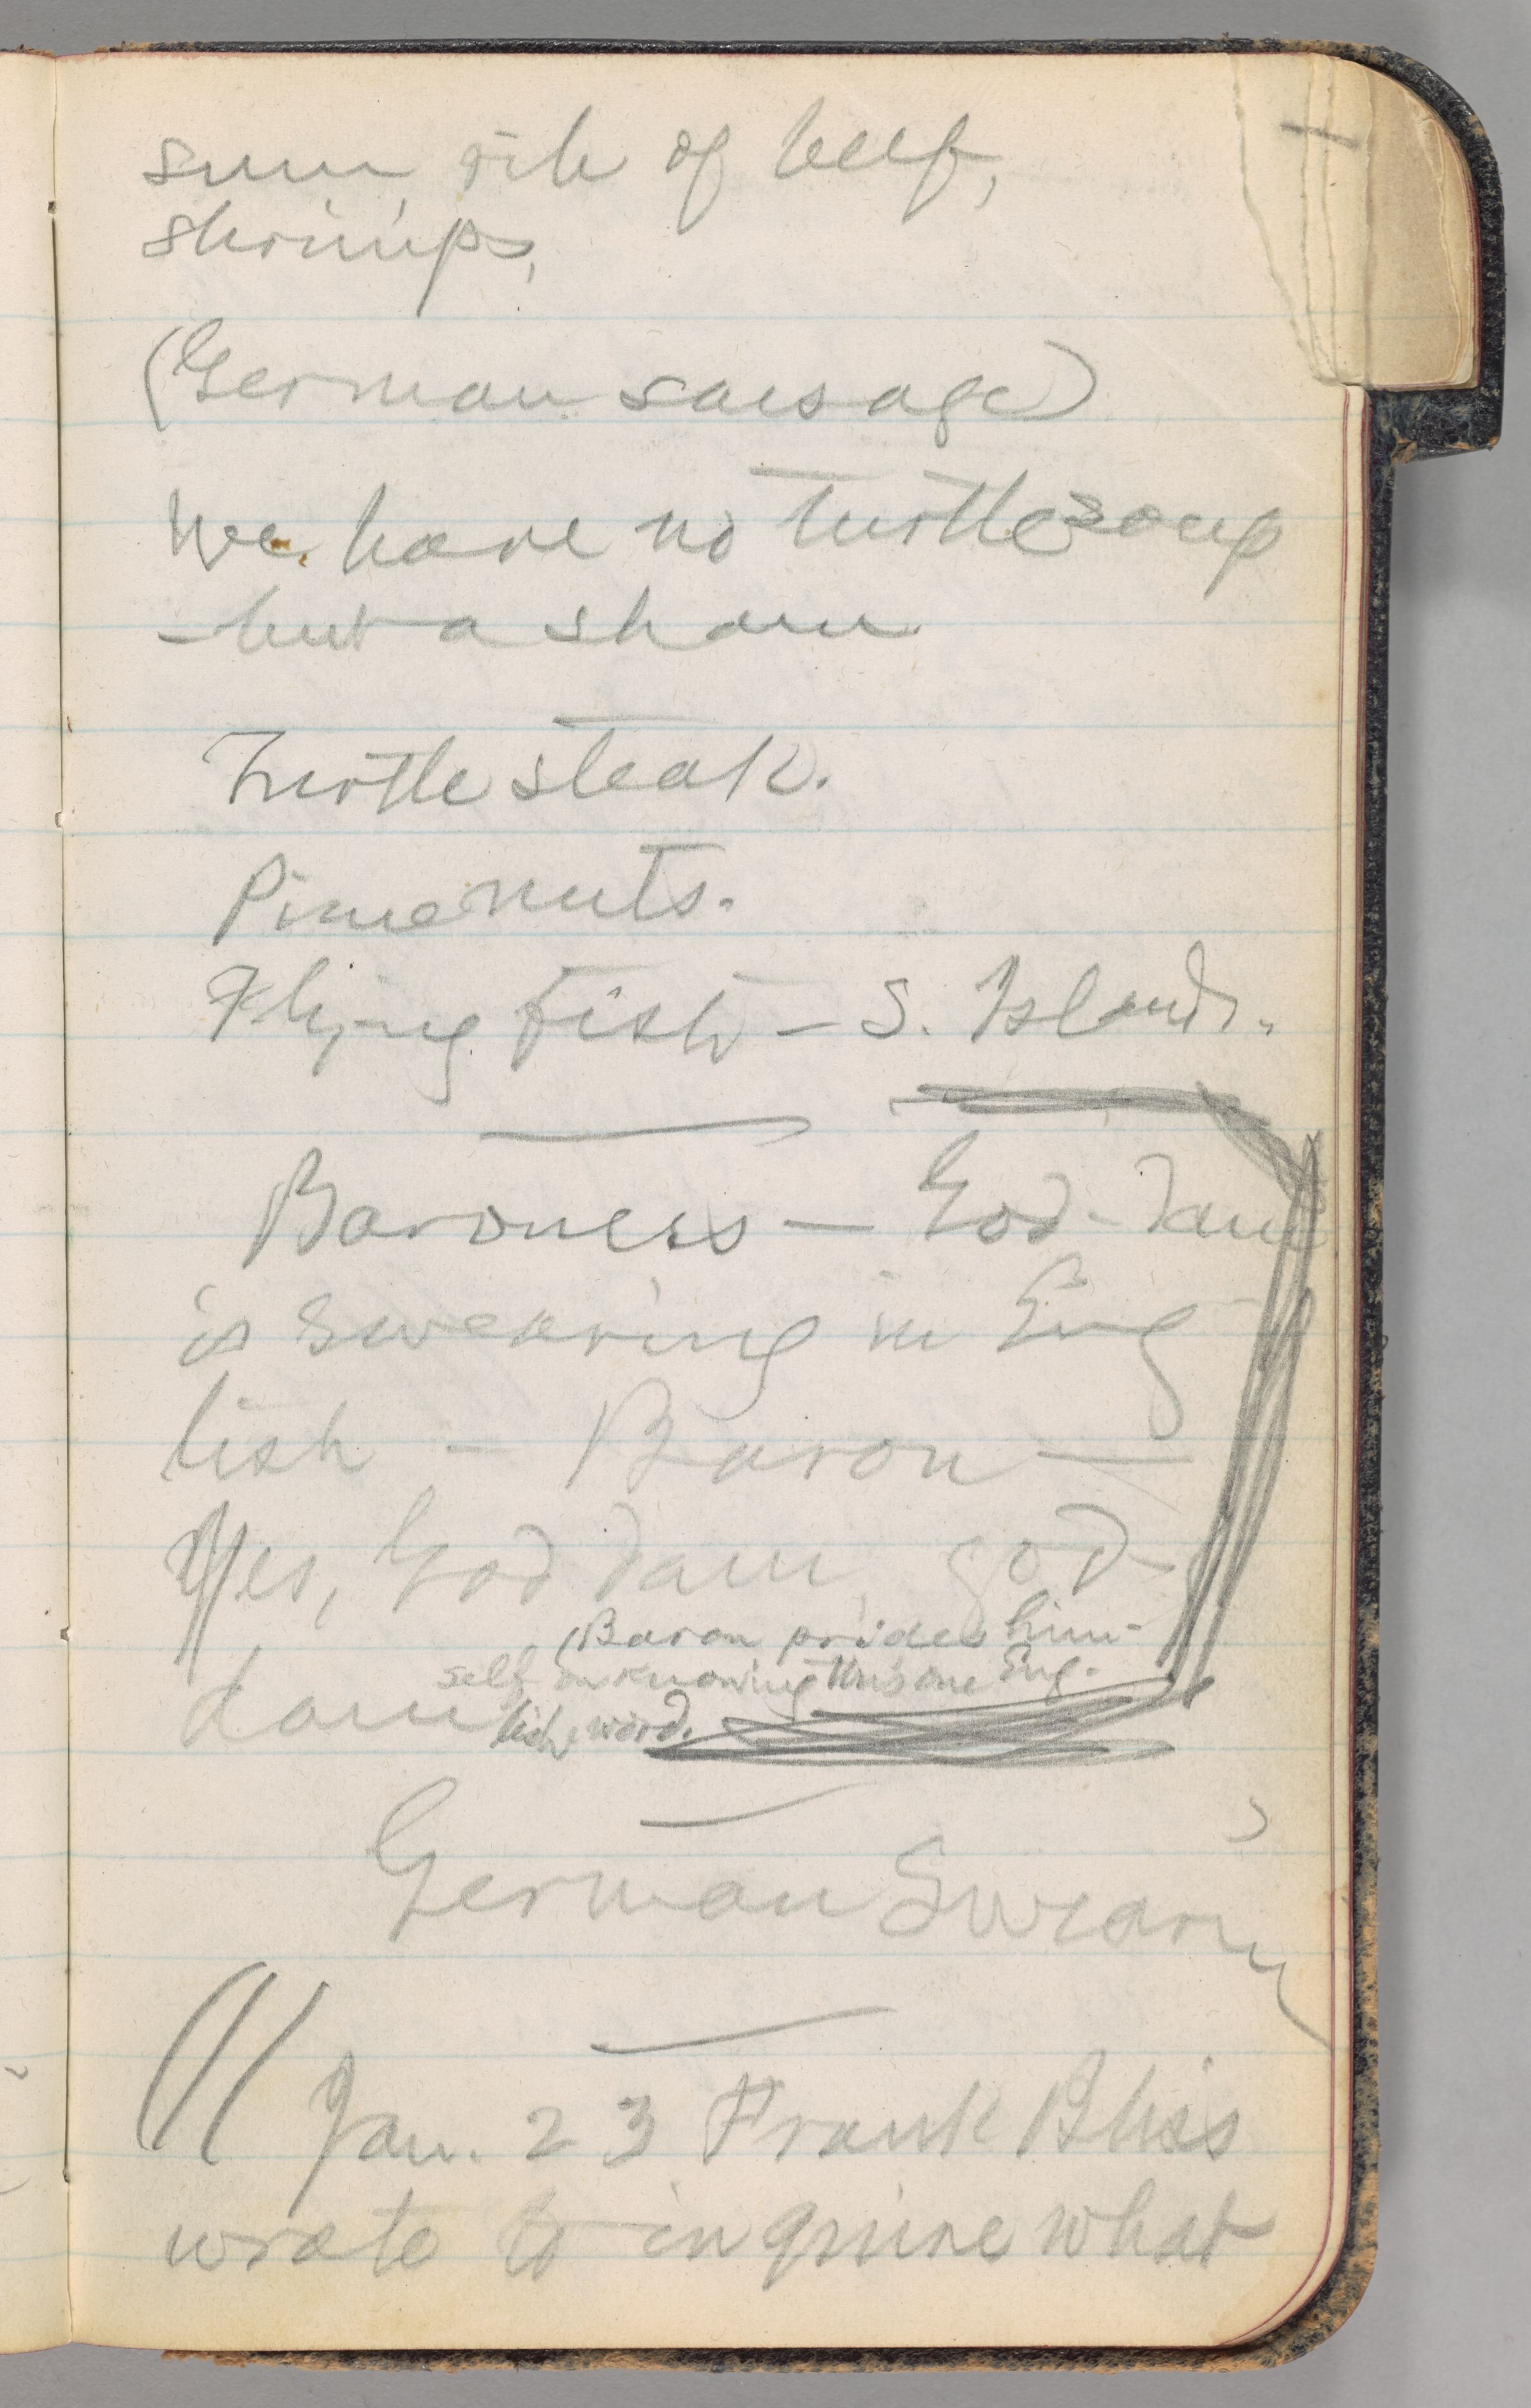 rib of beef,
shrimps,
(German sausage)
We have no turtle soup
—but a sham
Turtle steak.
Pine nuts.
Flying fish — S. Islands.
Baroness — God-dam
is swearing in Eng
lish — Baron —
Yes, God dam, god-
dam (Baron prides him-
self on knowing this one Eng-
lish word.
German Swearing
Jan. 23 Frank Bliss
wrote to inquire what